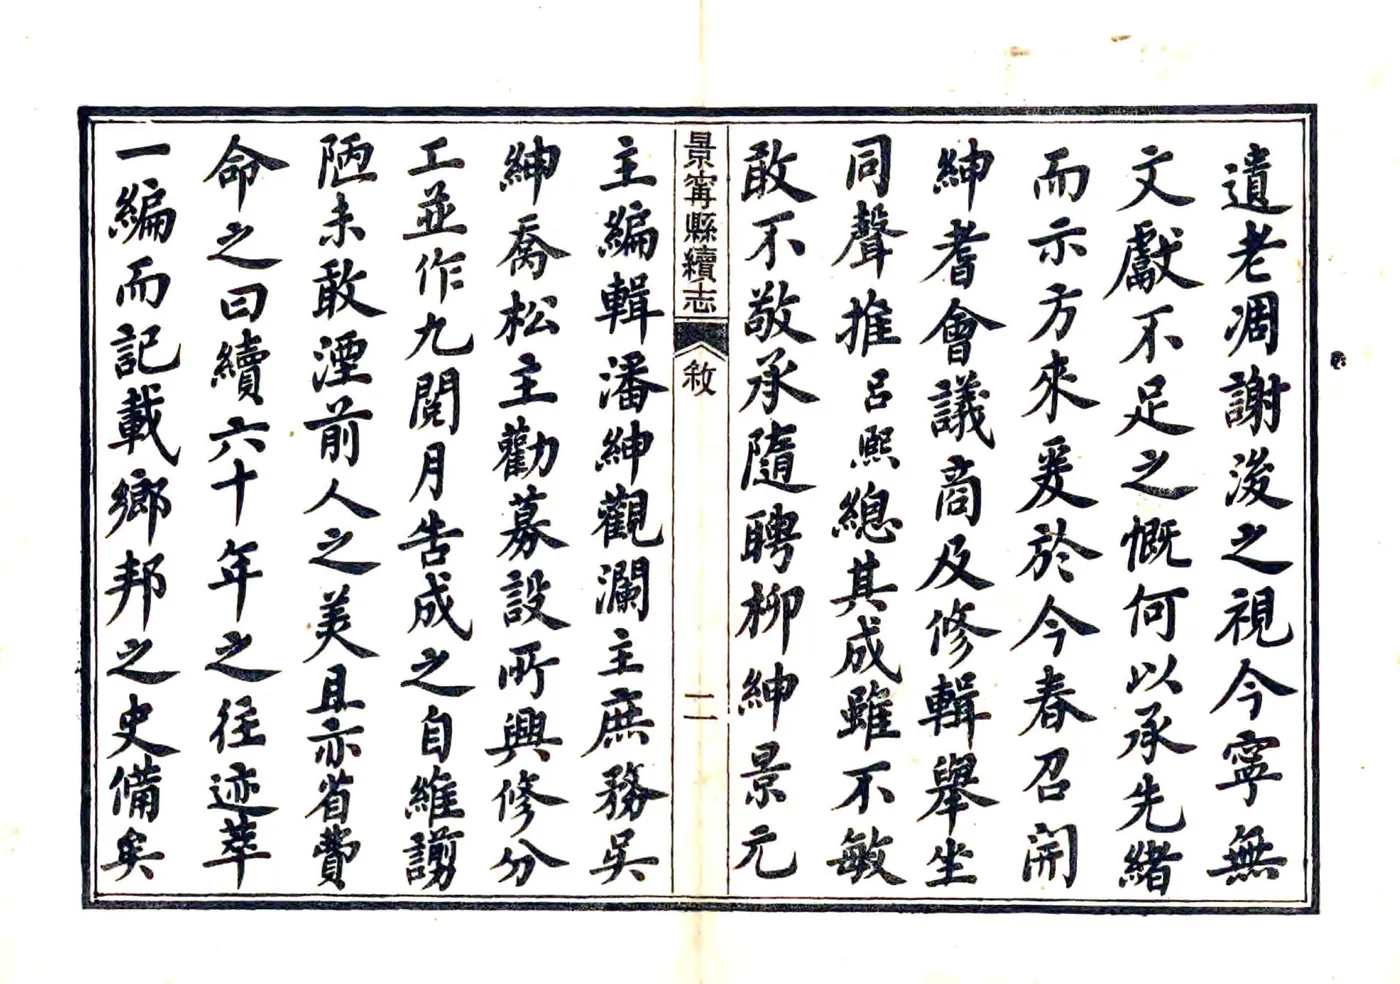 遺老凋謝後之視今寧無
文獻不足之慨何以承先緒
而示方來爰於今春召開
紳耆會議商及修輯舉坐
同聲推呂熙總其成雖不敏
敢不敬承隨聘柳紳景元
景寧縣續志
敘
二
主編輯潘紳觀瀾主庶務吳
紳喬松主勸募設所興修分
工並作九閱月告成之自維謭
陋未敢湮前人之美且亦省費
命之曰續六十年之往迹萃
一編而記載鄉邦之史備矣